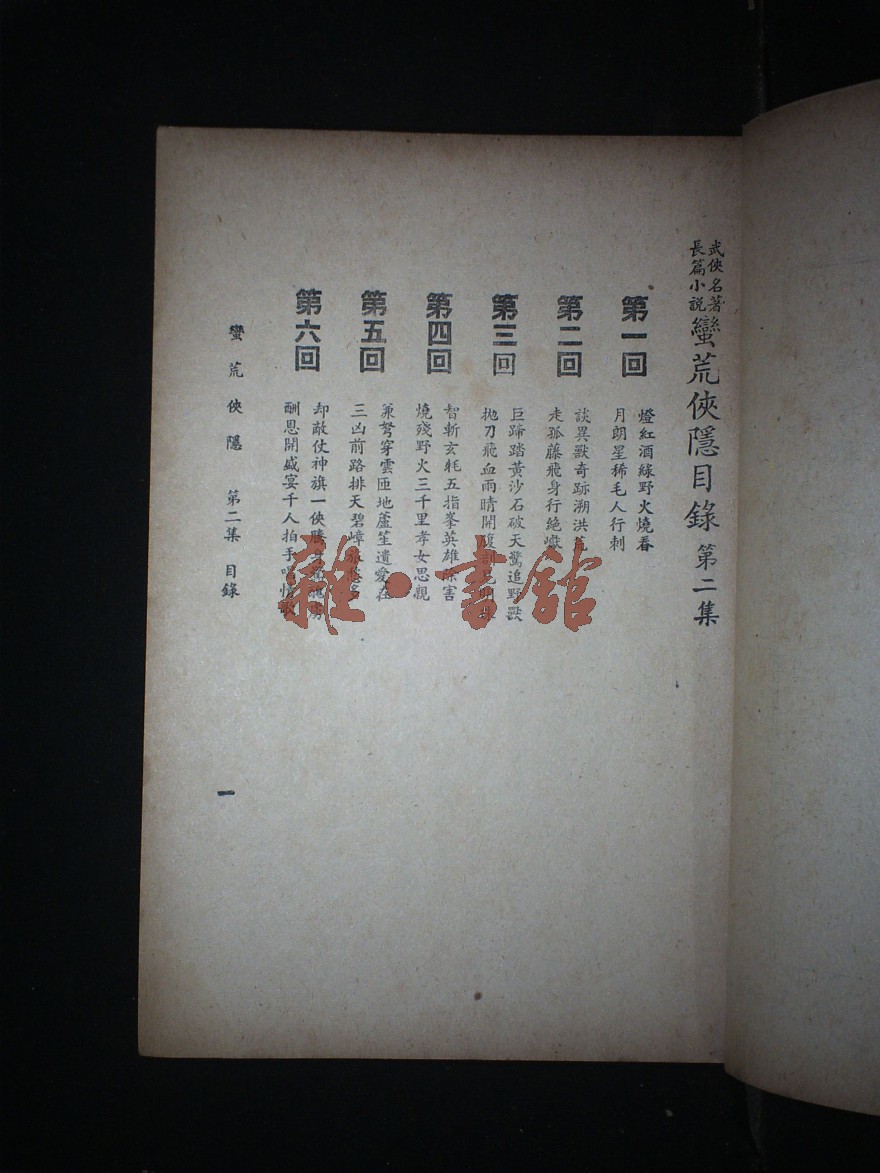 武俠名著
長篇小說
蠻荒俠隱目錄 第二集
第一回
燈紅酒綠野火燒看
月朗星稀毛人行刺
第二回
談異獸奇跡溯洪
走孤藤飛身行絕
第三回
巨蹄踏黃沙石破天驚追野獸
拋刀飛血雨晴開
第四回
智斬玄牦五指峯英雄除害
燒殘野火三千里孝女思親
第五回
兼弩穿雲匝地蘆笙遺愛在
三凶前路排天碧嶂旅愁多
第六回
却敵仗神旗一俠騰身
酬恩開盛宴千人拍手唱情歌
蠻荒俠隱 第二集 目錄
一
雜·書館